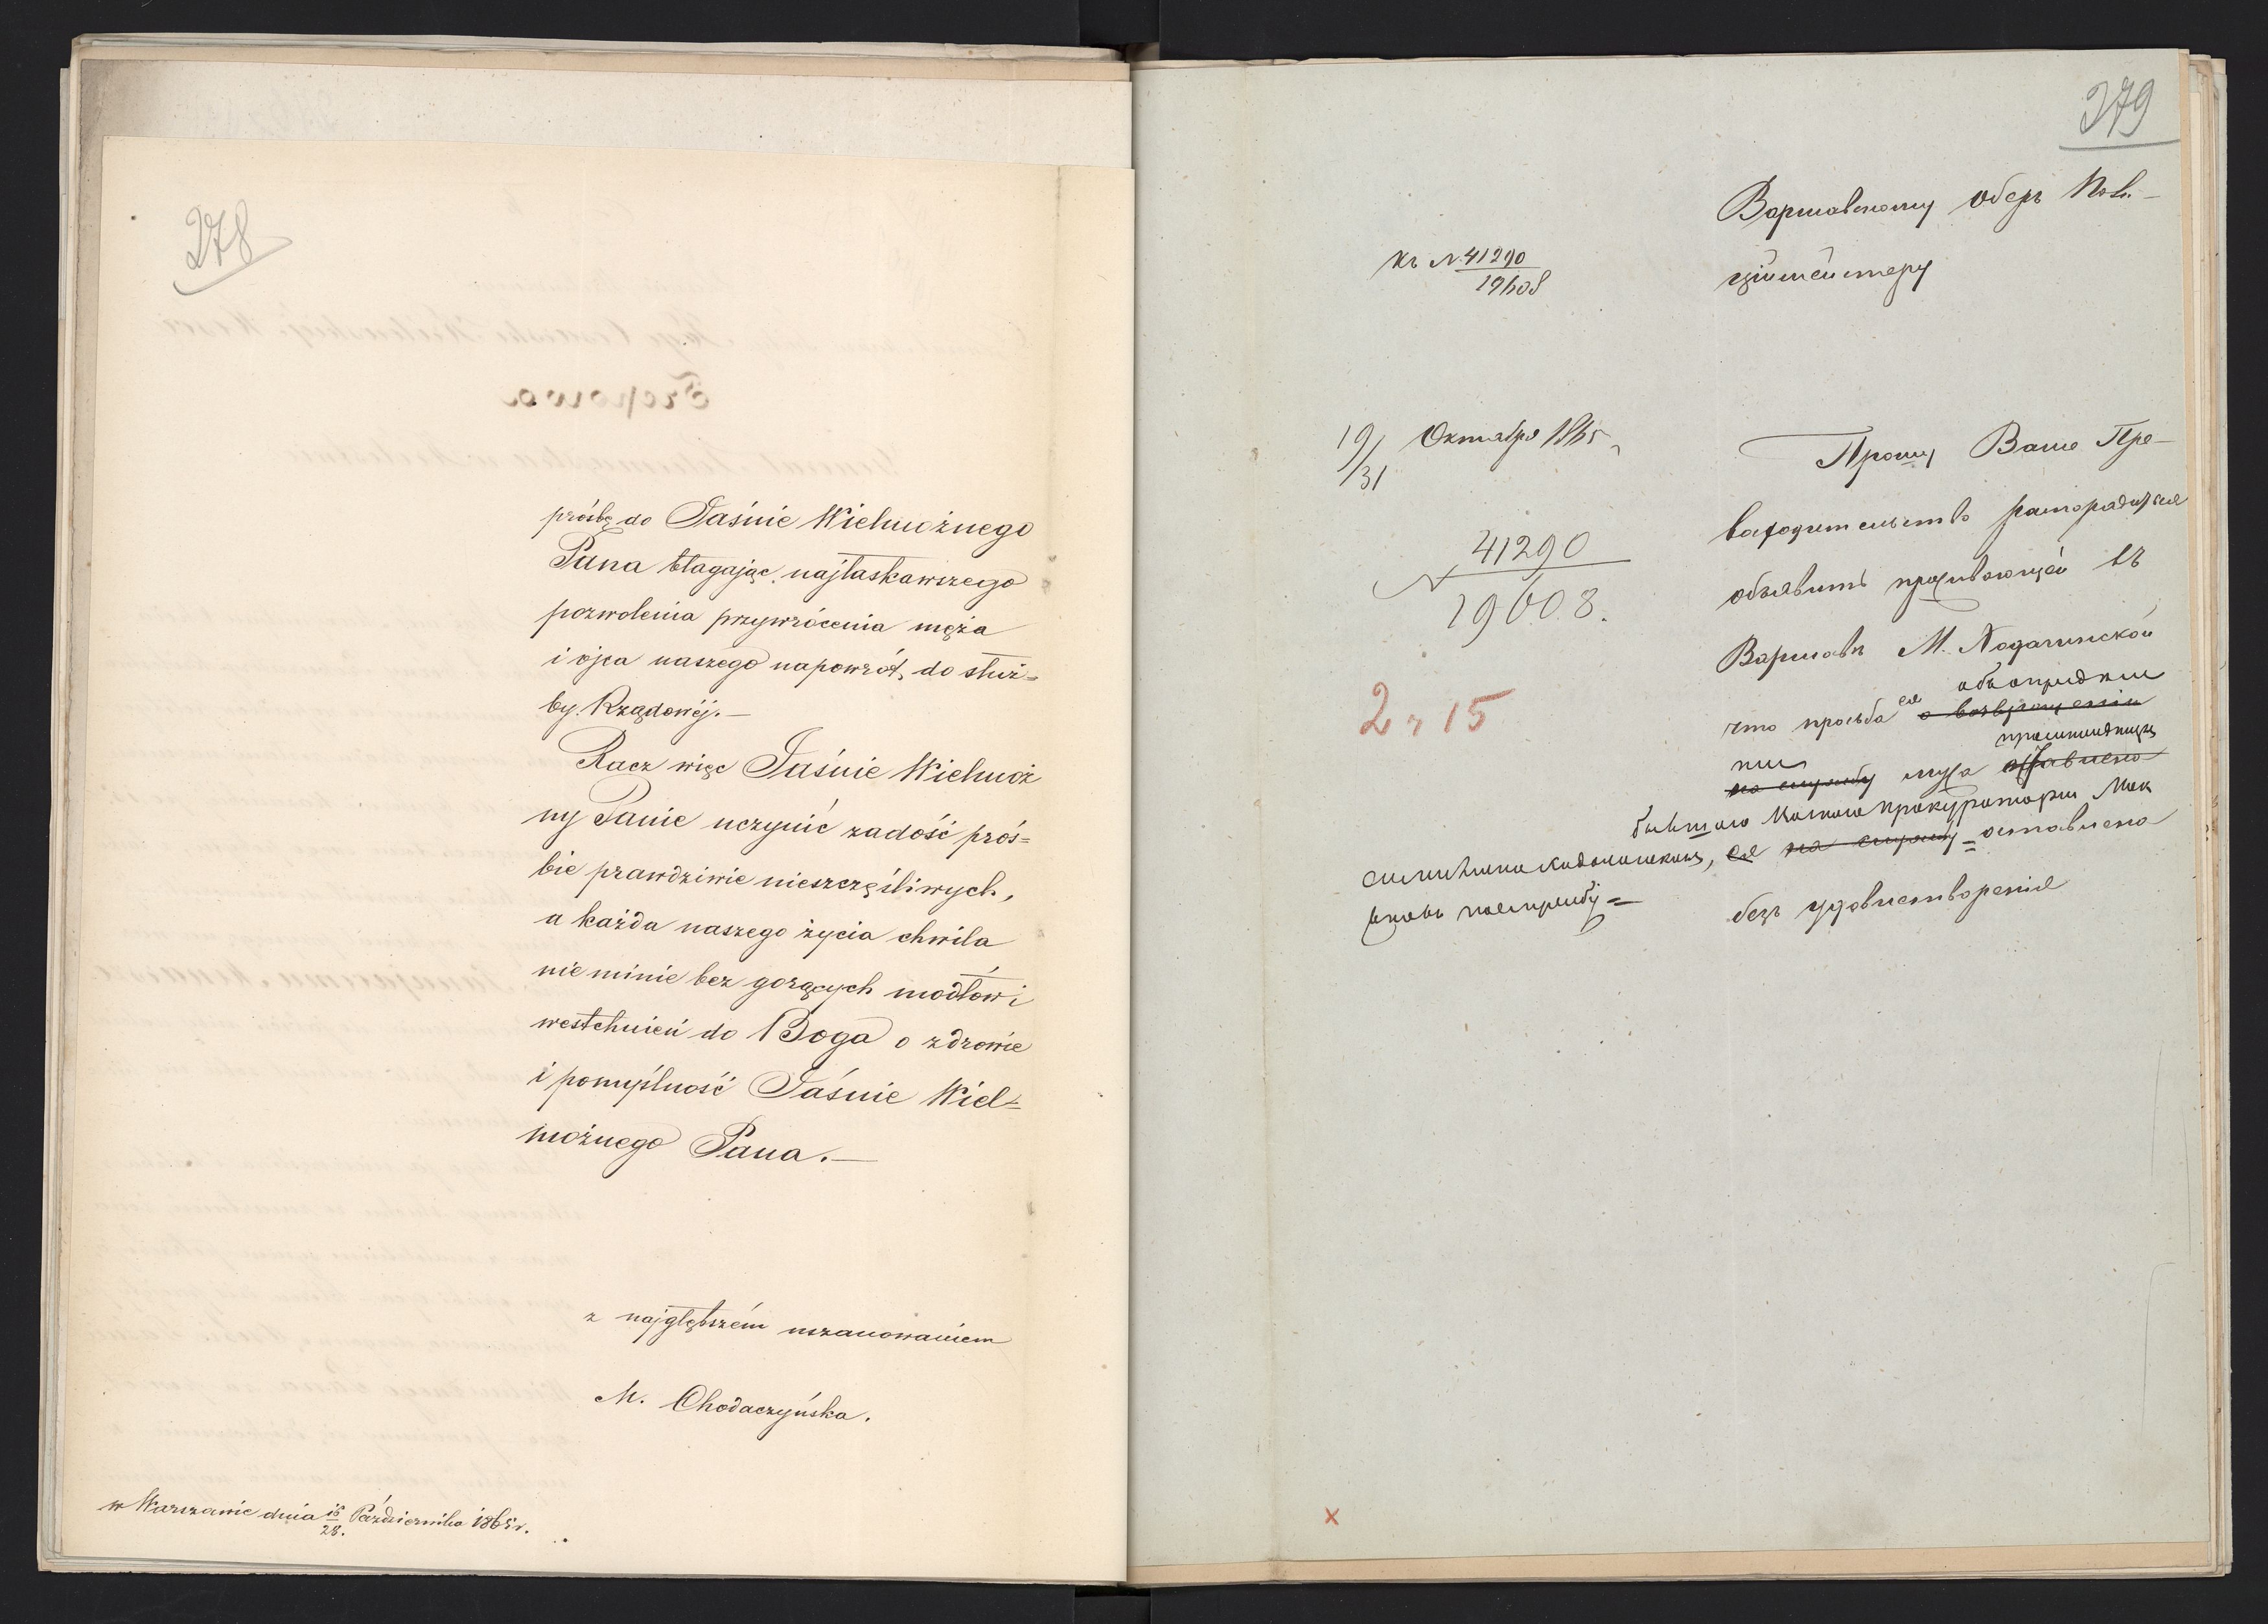 278
prośbę do Jaśnie Wielmożnego
Pana błagając najłaskawszego
pozwolenia przywrócenia męża
i ojca naszego napowrót, do służ=
by Rządowéj.—
Racz więc Jaśnie Wielmoż
ny Panie uczynić zadość proś=
bie prawdziwie nieszczęśliwych,
a każda naszego życia chwila
nie minie bez gorących modłów i
westchnień do Boga o zdrowie
i pomyślność Jaśnie Wiel=
możnego Pana.—
z najgłębszém uszanowaniem
M. Chodaczyńska.
w Warszawie dnia 16/28. Października 1865 r.
379
Варшавскому Оберъ Поли-
ційм​ейстеру
къ N. 41290/19608
19/31 Октября 1865
Прошу Ваше Пре-
N 41290/19608.
восходительство распорядиться
объявить проживающей въ
Варшавѣ М. Ходачинской
2 ч 15
что просьба ея о возвращеніи
на службу мужа оставлена
бывшаго Прокураторіи
ея на службу = оставлена
вновь на службу =
безъ удовлетворенія
x